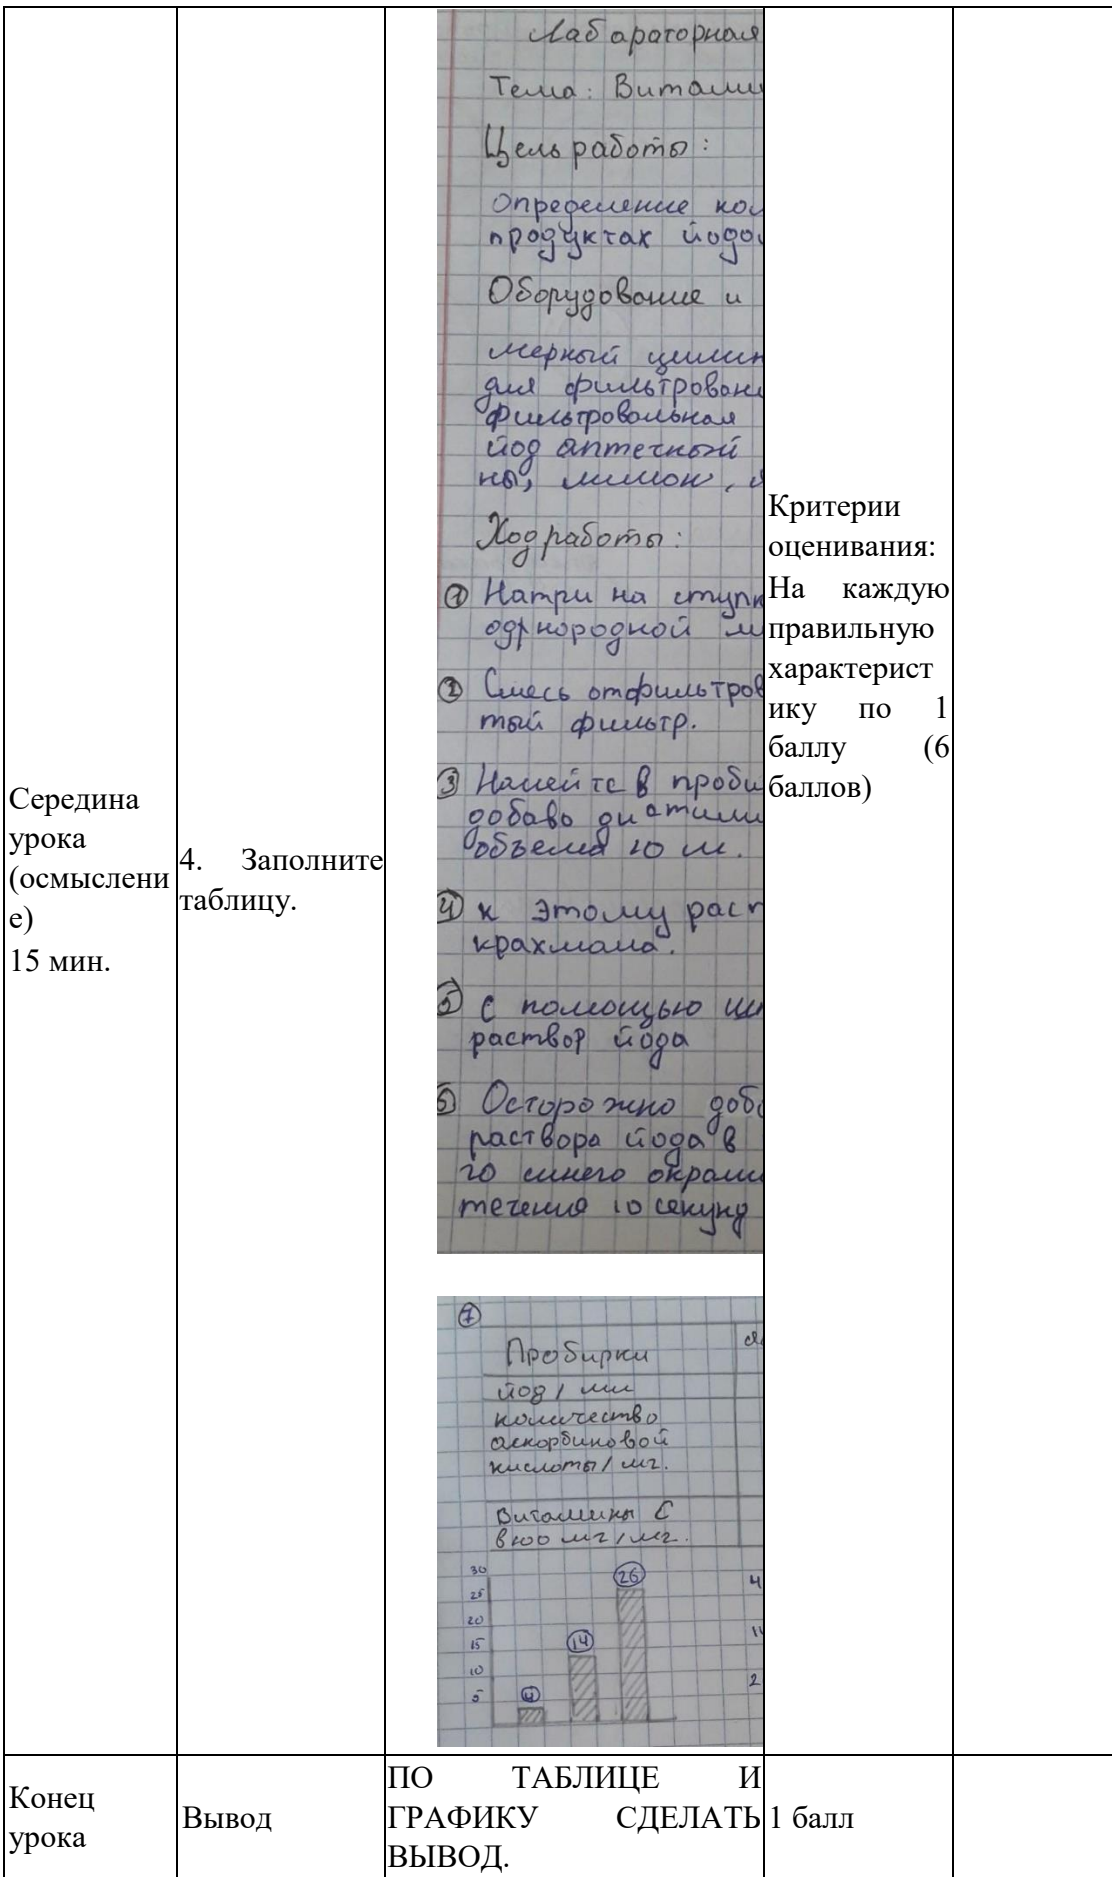 Середина
урока
(осмыслени
е)
15 мин.
4. Заполните
таблицу.
Лабараторная
Тема: Витами
Цель работы:
Определение кол
продуктах йодо
Оборудование и
мерный цилин
для фильтрован
фильтровальная
йод аптечный
ны, лимон,
Ход работы:
① Натри на ступк
однородной м
② Смесь отфильтров
тый фильтр.
③ Налейте в проби
добавь дистилл
объема 10 мл.
④ к этому раст
крахмала.
⑤ С помощью шп
раствор йода
⑥ Осторожно доба
раствора йода в
го синего окраш
течения 10 секунд
⑦
Пробирки
йод / мл
количество
аскорбиновой
кислоты / мг.
Витамины С
в 100 мг / мг.
30
25
20
15
10
5
4
14
26
4
1
2
Критерии
оценивания:
На каждую
правильную
характерист
ику по 1
баллу (6
баллов)
Конец
урока
Вывод
ПО ТАБЛИЦЕ И
ГРАФИКУ СДЕЛАТЬ
ВЫВОД.
1 балл